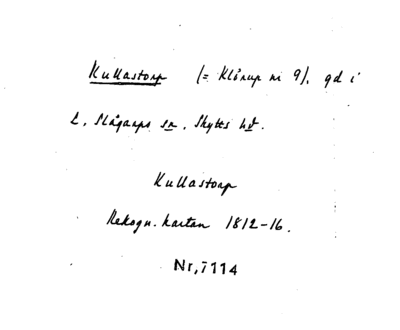 Kullastorp (= Klörup nr 9), gd i
L. Slågarps sn, Skytts hd.
Kullastorp
Rekogn. kartan 1812-16.
Nr, 7114